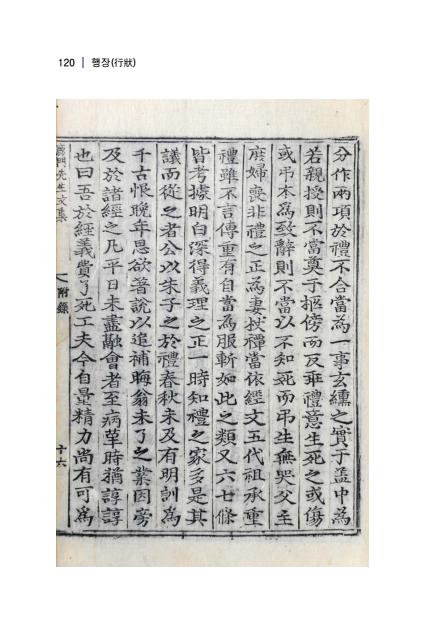 120 | 행장(行狀)
分作兩項於禮不合當為一事玄纁之實于盆中為
若親授則不當奠于柩傍而反乖禮意生死之或傷
或弔本為致辭則不當以不知死而弔生無哭父主
庶婦喪非禮之正為妻杖禫當依經文五代祖承重
禮雖不言傳重有自當為服斬如此之類又六七條
皆考據明白深得義理之正一時知禮之家多是其
議而從之者公以朱子之於禮春秋未及有明訓為
千古恨晚年思欲著說以追補晦翁未了之業因旁
及於諸經之凡平日未盡融會者至病革時猶諄諄
也曰吾於經義費了死工夫今自量精力尚有可為
先生文集
附錄
十六